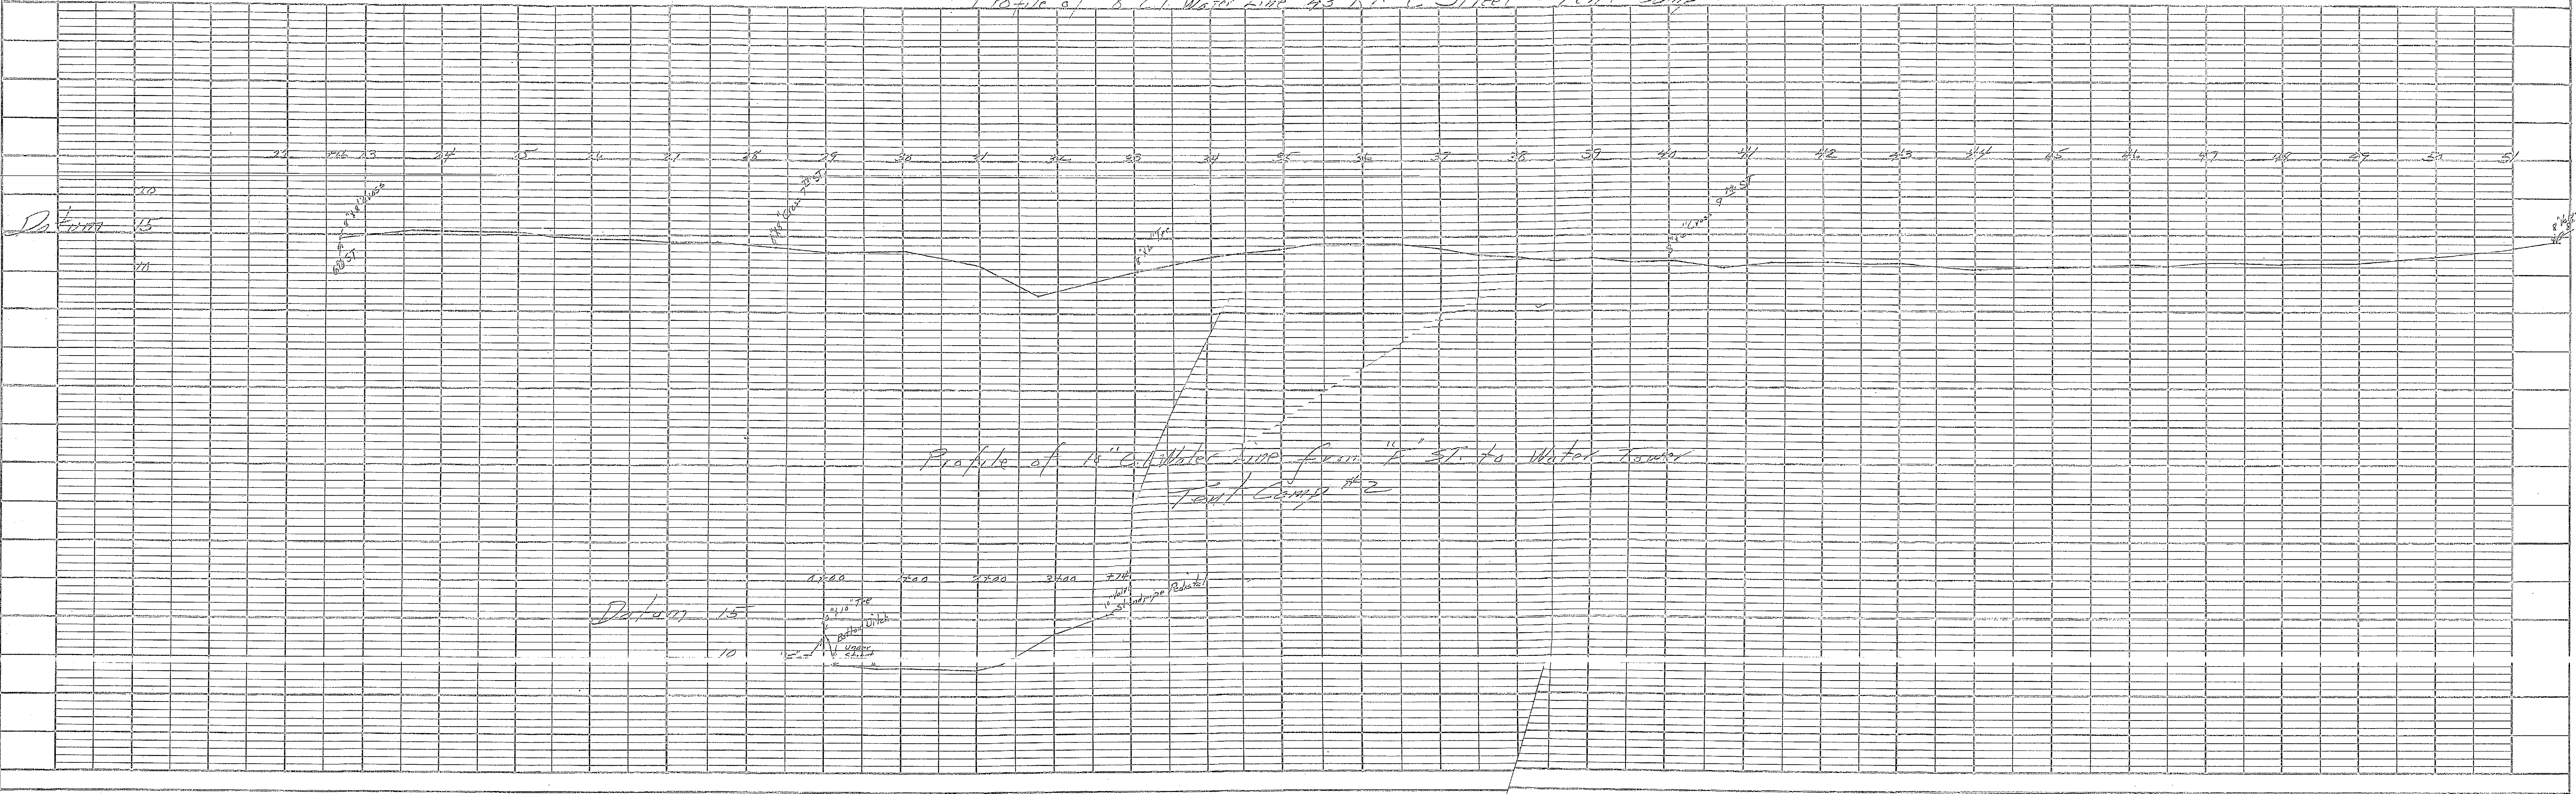 Profile of 8" C.I. Water Line
22 +66 23 24 25 26 27 28 29 30 31 32 33 34 35 36 37 38 39 40 41 42 43 44 45 46 47 48 49 50 51
20
Datum 15
10
8"x8" Cross
6th ST.
Cross 7th ST.
8"x6" Tee
Cross 9th ST.
Profile of 10" C.I. Water Line from "E" ST. to Water Tower
Tent Camp #2
0+00 1+00 2+00 3+00 +74
Datum 15
10
10" Tee
Bottom Ditch
Under Street
10" Valve
Standpipe Pedestal